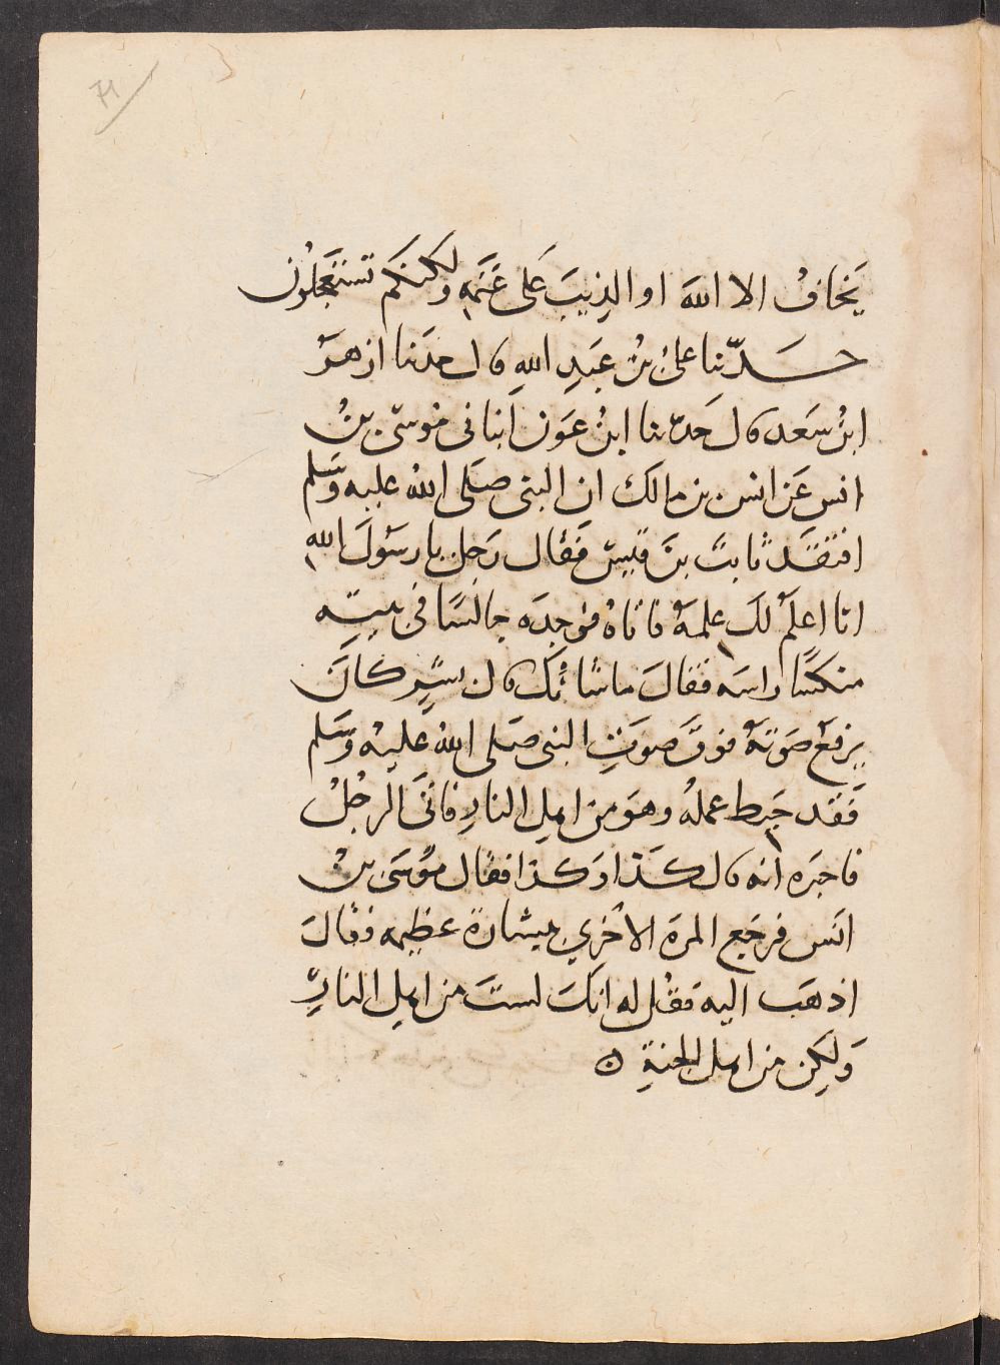 71
يَخافُ الا اللهَ او الذيبَ عَلى غَنَمِه ولكنكم تستَعجلون
حــدّثنا علىُ بنُ عَبدِ اللهِ قال حدثنا ازهَرُ
ابنُ سَعد قال حَدثنا ابنُ عَون انبانى موسَى بنُ
انس عَن انس بن مالك ان النبى صَلى اللهُ عليه وَسَلم
افتقَدَ ثابتَ بنَ قيسٍ فقال رَجل يا رسوُلَ اللهِ
انا اعلمُ لكَ علمهُ فاتاهُ فوجدَه جالسًا فى بيتِه
منكسًا راسَه فقالَ ما شانُكَ قال شرٌ كانَ
يرفعُ صَوتَهُ فوقَ صَوتِ النبى صَلى اللهُ عليهِ وَسَلم
فَقَد حَبِط عملهُ وهوَ من اهلِ النارِ فاتَى الرجُلُ
فاخبَره انه قال كذا وَكذا فقال مُوسَى بنُ
انَس فرجَع المرةَ الاخرىِ ببشارةٍ عظيمه فقالَ
اذهَب اليه فقُل له انكَ لستَ من اهلِ النارِ
وَلكِن من اهل الجنةِ ه